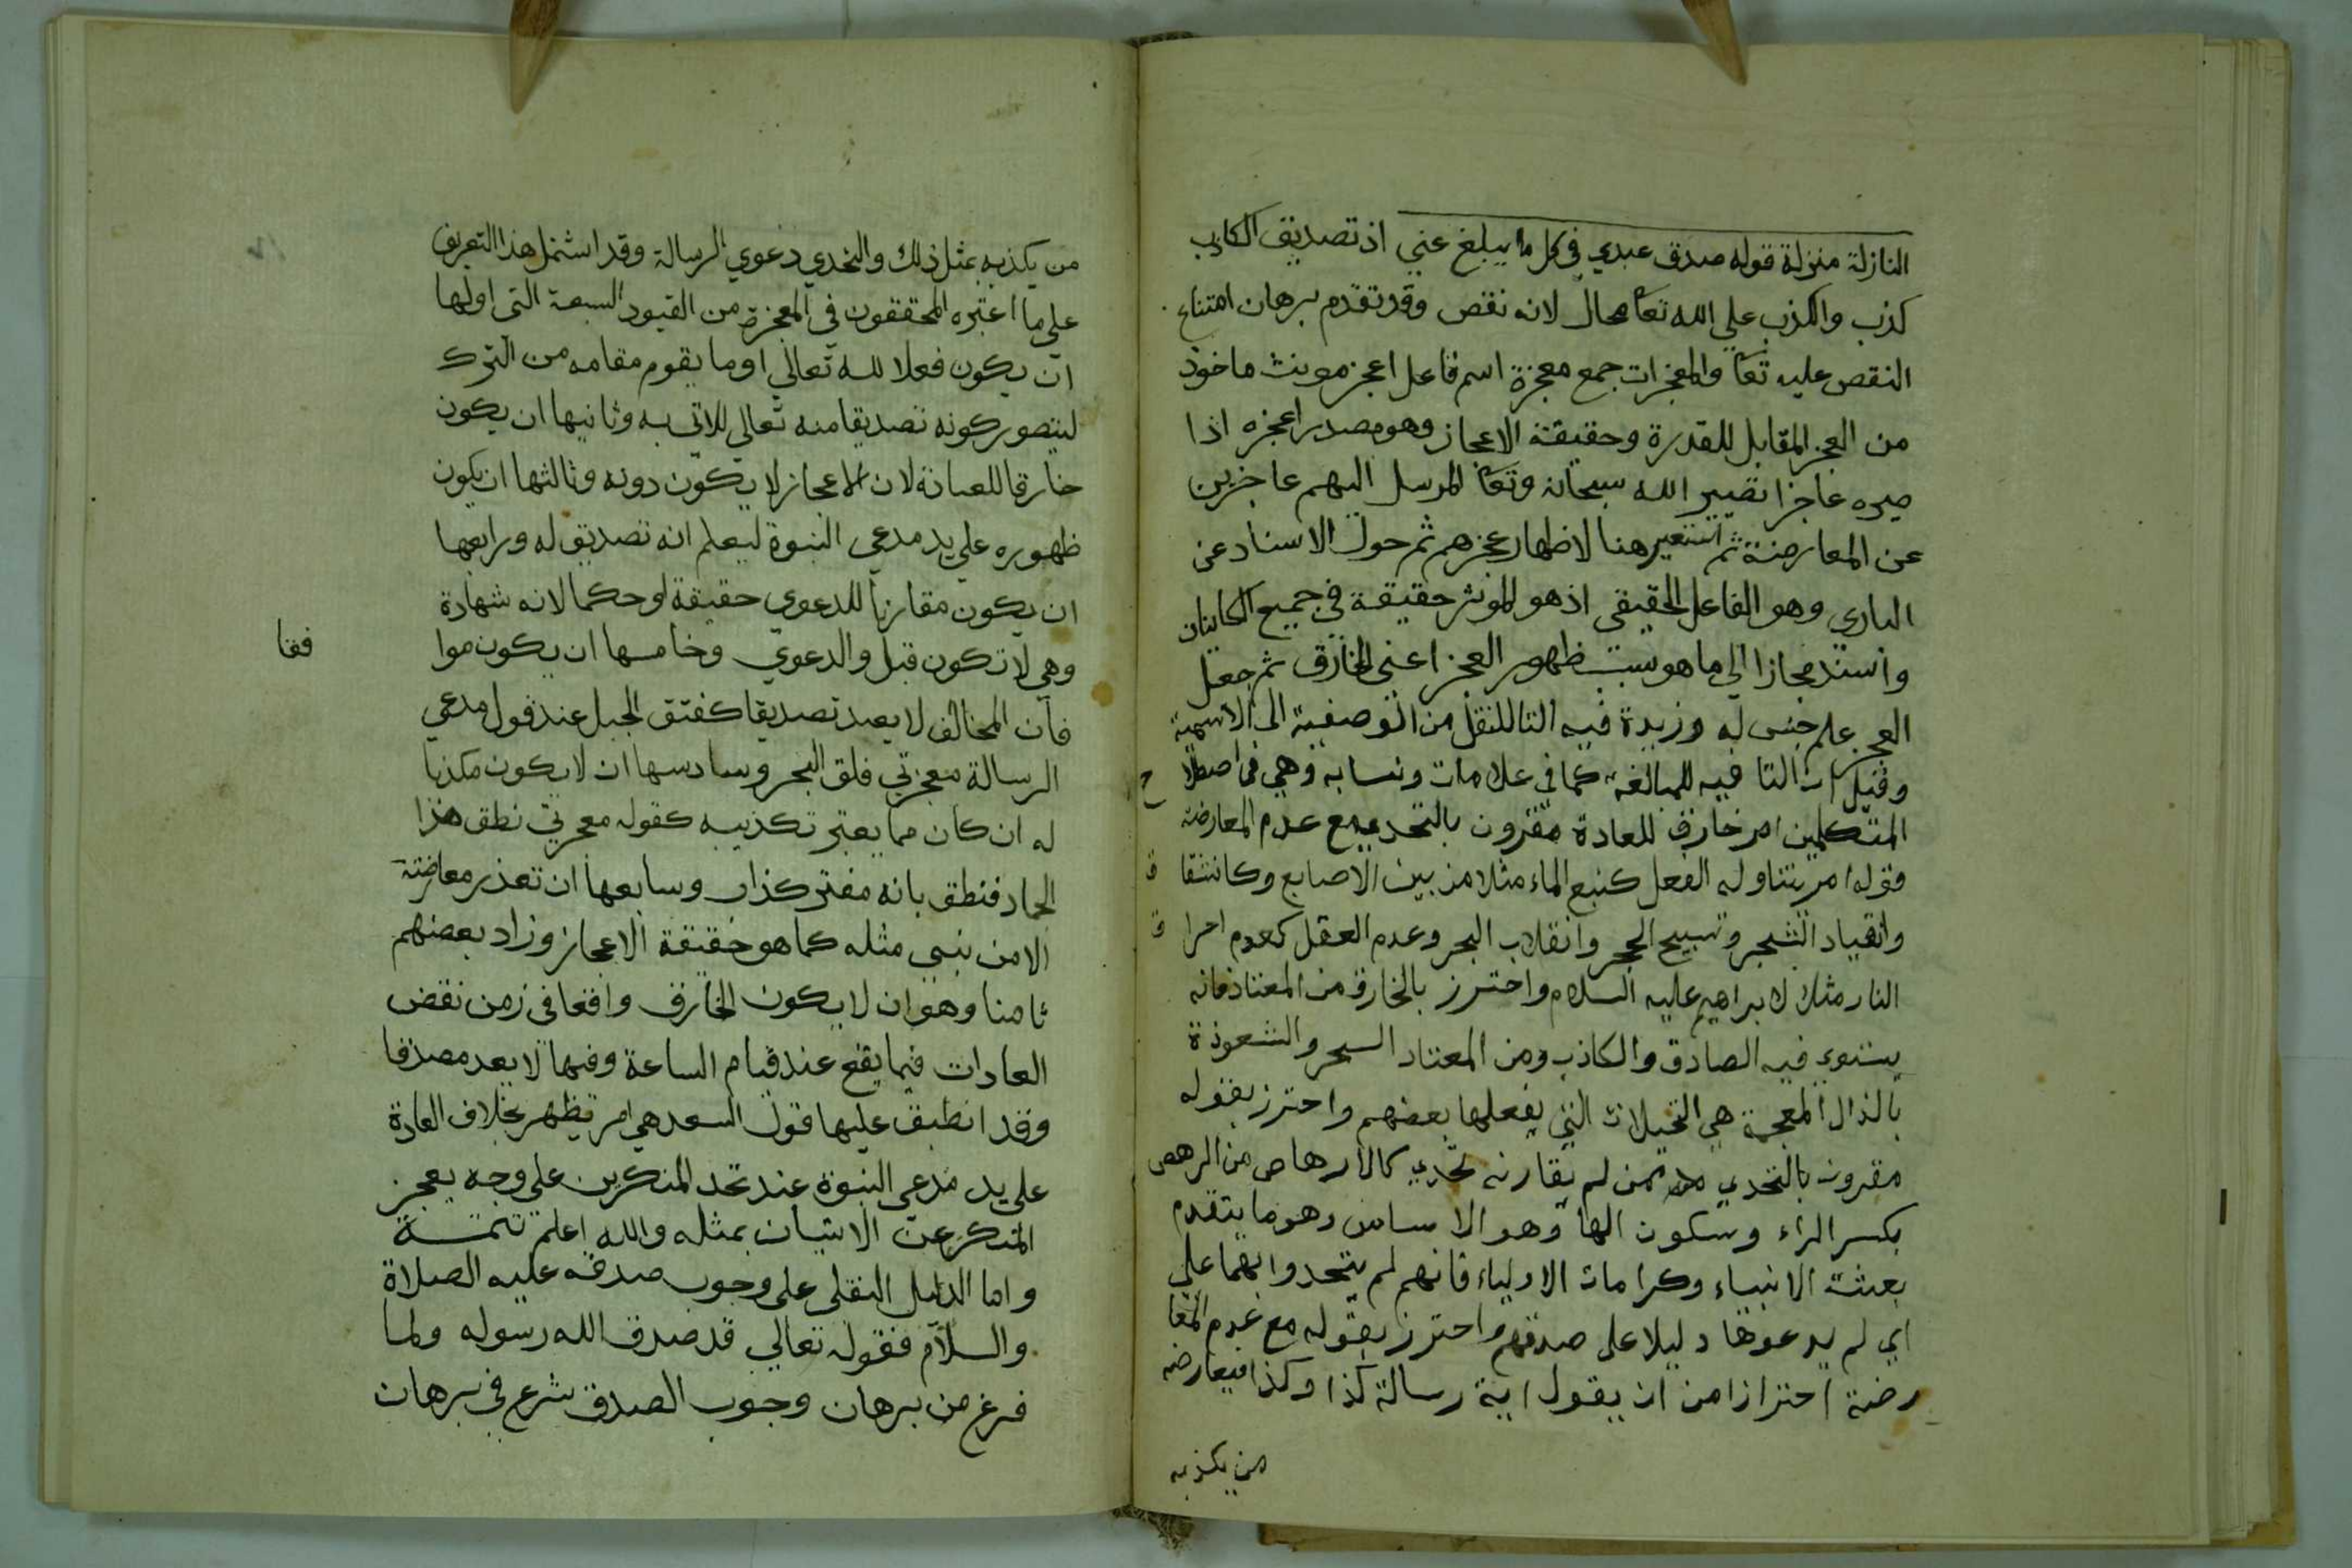 النازلة منزلة قوله صدق عبدي في كل ما يبلغ عني اذ تصديق الكاذب
كذب والكذب علي الله تعا محال لانه نقص وقد تقدم برهان امتناع
النقص عليه تعا والمعجزات جمع معجزة اسم فاعل اعجز مونث ماخوذ
من العجز المقابل للقدرة وحقيقة الاعجاز وهو مصدر اعجزه اذا
صيره عاجزا تصيير الله سبحانه وتعا المرسل اليهم عاجزين
عن المعارضة ثم استعير هنا لاظهار عجزهم ثم حول الاسناد عن
الباري وهو الفاعل الحقيقي اذ هو الموثر حقيقة في جميع الكاينات
واسند مجازا الي ما هو سبب ظهور العجز اعني الخارق ثم جعل
العجز علم جنس له وزيدة فيه التا للنقل من الوصفية الى الاسمية
وقيل ان التا فيه للمبالغة كما في علامات ونسابه وهي في اصطلا ح
المتكلمين امر خارق للعادة مقرون بالتحدي مع عدم المعارضة
قوله امر يتناوله الفعل كنبع الماء مثلا من بين الاصابع وكانشقا ق
وانقياد الشجر وتسبيح الحجر وانقلاب البحر وعدم العقل كعدم احرا ق
النار مثلا لابراهيم عليه السلام واحترز بالخارق من المعتاد فانه
يستوي فيه الصادق والكاذب ومن المعتاد السحر والشعوذة
بالذال المعجمة هي التخيلات التي يفعلها بعضهم واحترز بقوله
مقرون بالتحدي ممن لم يقارنه تحدي كالارهاص من الرهص
بكسر الراء وسكون الها وهو الاساس وهو ما يتقدم
بعثة الانبياء وكرامات الاولياء فانهم لم يتحدوا بهما علي
اي لم يدعوها دليلا على صدقهم واحترز بقوله مع عدم المعا
رضة احترازا من ان يقول اية رسالة كذا وكذا فيعارضه
من يكذبه
من يكذبه بمثل ذلك والتحدي دعوي الرسالة وقد اشتمل هذا التعريف
علي ما اعتبره المحققون في المعجزة من القيود السبعة التي اولها
ان يكون فعلا لله تعالي او ما يقوم مقامه من الترك
ليتصور كونه تصديقا منه تعالي للاتي به وثانيها ان يكون
خارقا للعادة لان الاعجاز لا يكون دونه وثالثها ان يكون
ظهوره علي يد مدعي النبوة ليعلم انه تصديق له ورابعها
ان يكون مقارنا للدعوي حقيقة او حكما لانه شهادة
وهي لا تكون قبل والدعوي وخامسها ان يكون موا فقا
فان المخالف لا يعد تصديقا كفتق الجبل عند قول مدعي
الرسالة معجزتي فلق البحر وسادسها ان لا يكون مكذبا
له ان كان مما يعتبر تكذيبه كقوله معجزتي نطق هذا
الجماد فنطق بانه مفتر كذاب وسابعها ان تعذر معارضته
الا من نبي مثله كما هو حقيقة الاعجاز وزاد بعضهم
ثامنا وهو ان لا يكون الخارق واقعا في زمن نقض
العادات فيما يقع عند قيام الساعة وفيها لا يعد مصدقا
وقد انطبق عليها قول السعد هي امر يظهر بخلاف العادة
علي يد مدعي النبوة عند تحد المنكرين علي وجه يعجز
المنكر عن الاتيان بمثله والله اعلم تتمة
واما الدليل النقلي علي وجوب صدقه عليه الصلاة
والسلام فقوله تعالي قد صدق الله رسوله ولما
فرغ من برهان وجوب الصدق شرع في برهان